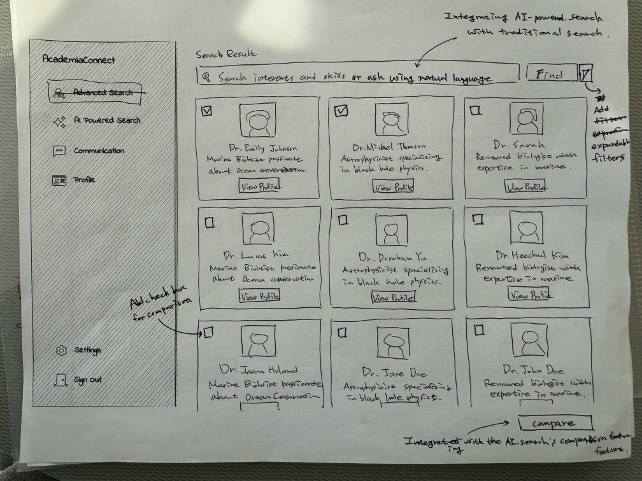 Integrating AI-powered search
with traditional search.
AcademiaConnect
Search Result
Search interests and skills or ask using natural language
Find
Advanced Search
AI Powered Search
Communication
Profile
Add
expandable
filters
Dr. Emily Johnson
Marine Biologist passionate
about Ocean conservation
View Profile
Dr. Michael Thomson
Astrophysicist specializing
in black hole physics.
View Profile
Dr. Sarah
Renowned biologist with
expertise in marine.
View Profile
Dr Lucas Kim
Marine Biologist passionate
about Ocean conservation
View Profile
Dr. Donohan Yu
Astrophysicist specializing
in black hole physics.
View Profile
Dr Heechul Kim
Renowned biologist with
expertise in marine
View Profile
Add check box
for comparison
Dr. Jason Holand
Marine Biologist passionate
about Ocean Conservation
Dr. Jane Doe
Astrophysicist specializing
in black hole physics.
Dr. John Doe
Renowned biologist with
expertise in marine.
Settings
Sign out
compare
Integrating with the AI search's comparison
feature.